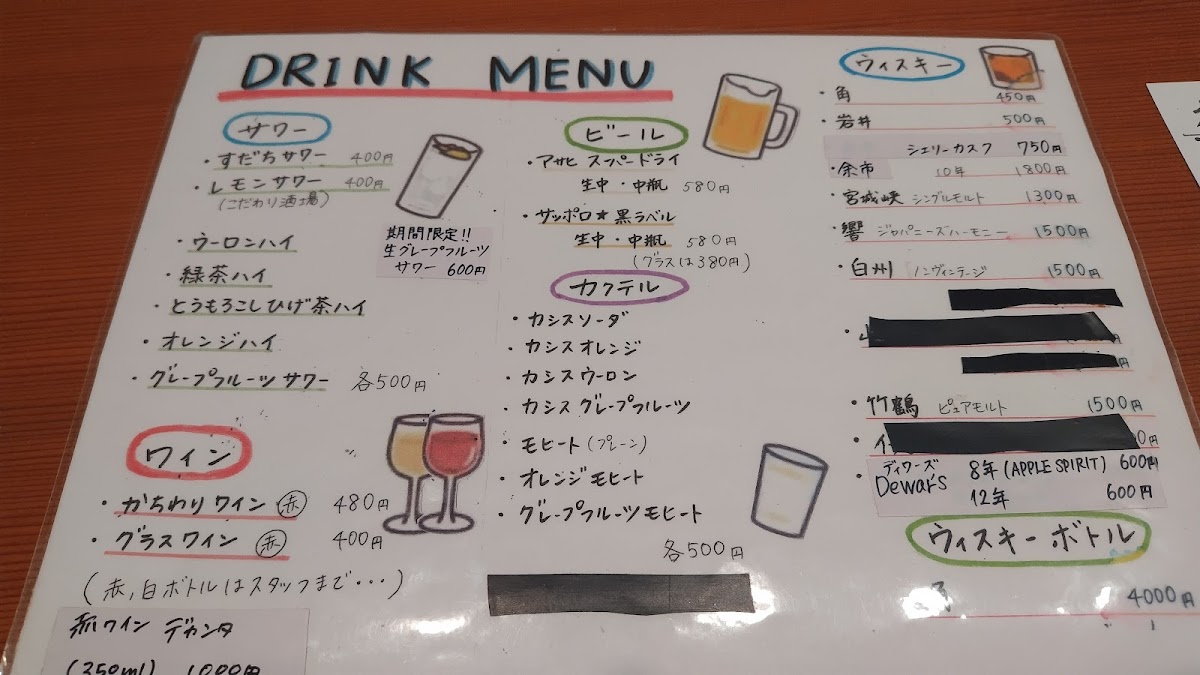 DRINK MENU
サワー
・すだちサワー 400円
・レモンサワー 400円
(こだわり酒場)
期間限定!!
生グレープフルーツ
サワー 600円
・ウーロンハイ
・緑茶ハイ
・とうもろこしひげ茶ハイ
・オレンジハイ
・グレープフルーツサワー 各500円
ワイン
・かちわりワイン 赤 480円
・グラスワイン 赤 400円
(赤,白ボトルはスタッフまで・・・)
赤ワイン デカンタ
(350ml) 1000円
ビール
・アサヒ スーパードライ
生中・中瓶 580円
・サッポロ★黒ラベル
生中・中瓶 580円
(グラスは380円)
カクテル
・カシスソーダ
・カシスオレンジ
・カシスウーロン
・カシスグレープフルーツ
・モヒート(プレーン)
・オレンジモヒート
・グレープフルーツモヒート
各500円
ウィスキー
・角 450円
・岩井 500円
シェリーカスク 750円
・余市 10年 1800円
・宮城峡 シングルモルト 1300円
・響 ジャパニーズハーモニー 1500円
・白州 ノンヴィンテージ 1500円
・竹鶴 ピュアモルト 1500円
・ディワーズ
Dewar's 8年(APPLE SPIRIT) 600円
12年 600円
ウィスキーボトル
4000円